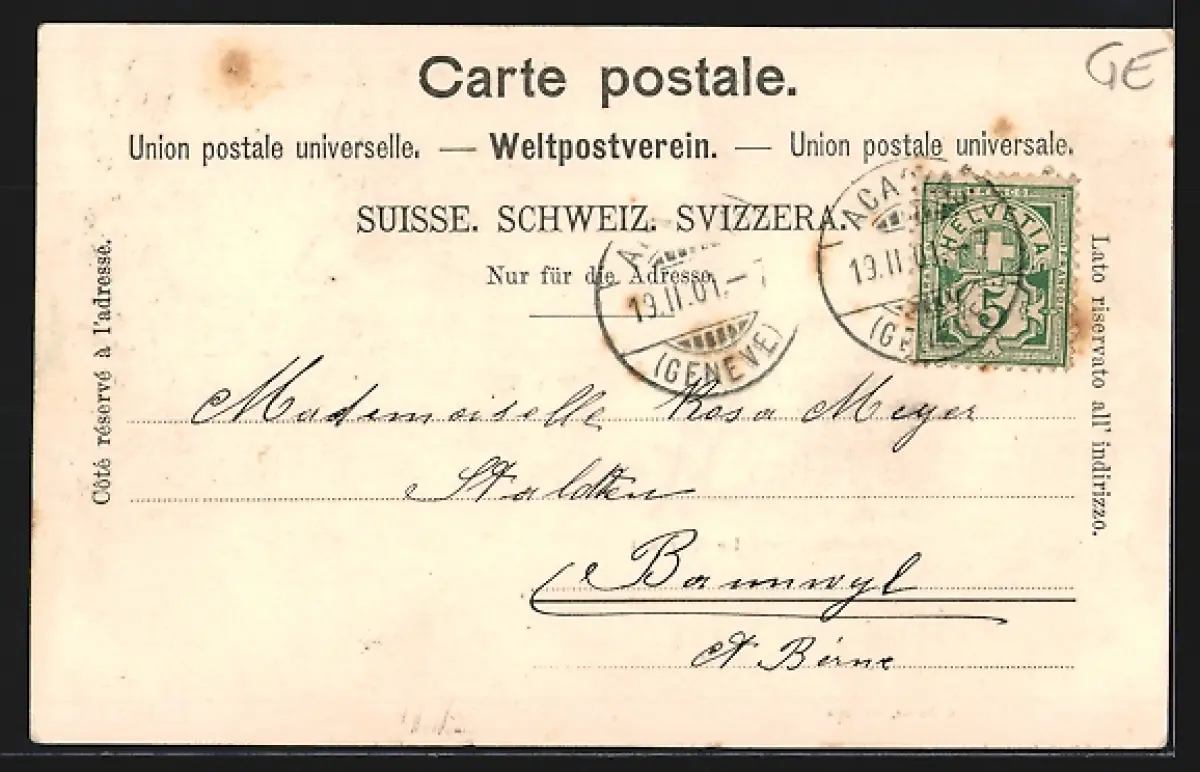 GE
Carte postale.
Union postale universelle. — Weltpostverein. — Union postale universale.
SUISSE. SCHWEIZ. SVIZZERA.
Nur für die Adresse.
Côté réservé à l'adresse.
Lato riservato all' indirizzo.
19.II.01.-7
(GENEVE)
19.II.01
HELVETIA
5
Mademoiselle Rosa Meyer
Stalden
Ct Berne